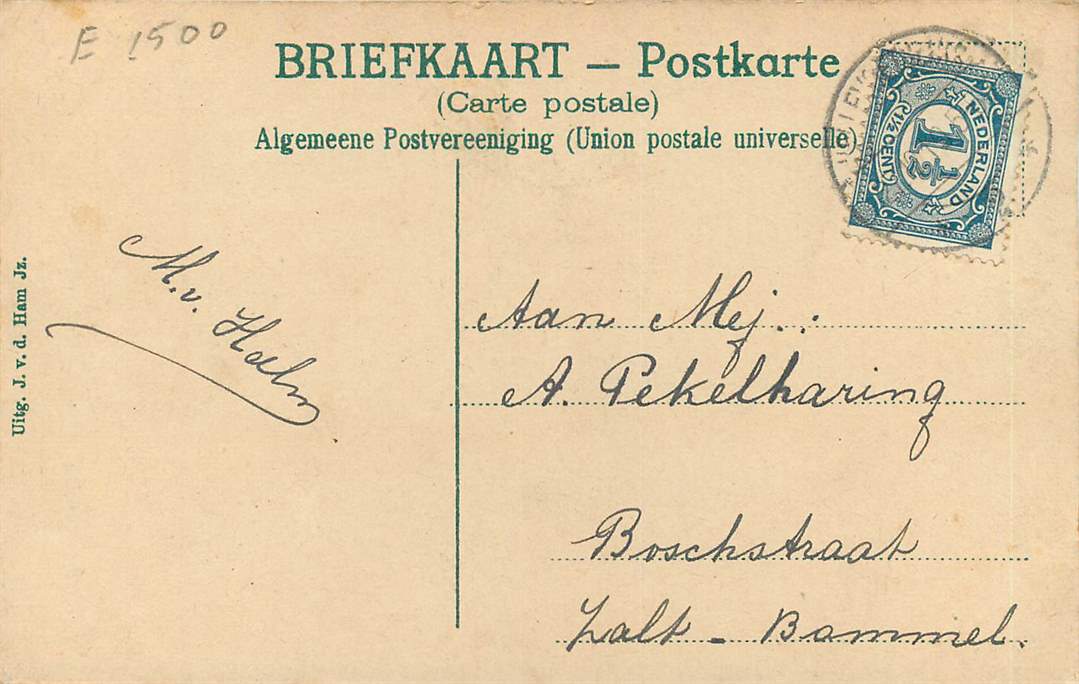 E 1500
BRIEFKAART — Postkarte
(Carte postale)
Algemeene Postvereeniging (Union postale universelle)
NEDERLAND
1½
(1½ CENT)
Uitg. J. v. d. Ham Jz.
M. v. 
Aan Mej.:
A. Pekelharing
Boschstraat
Zalt - Bommel.